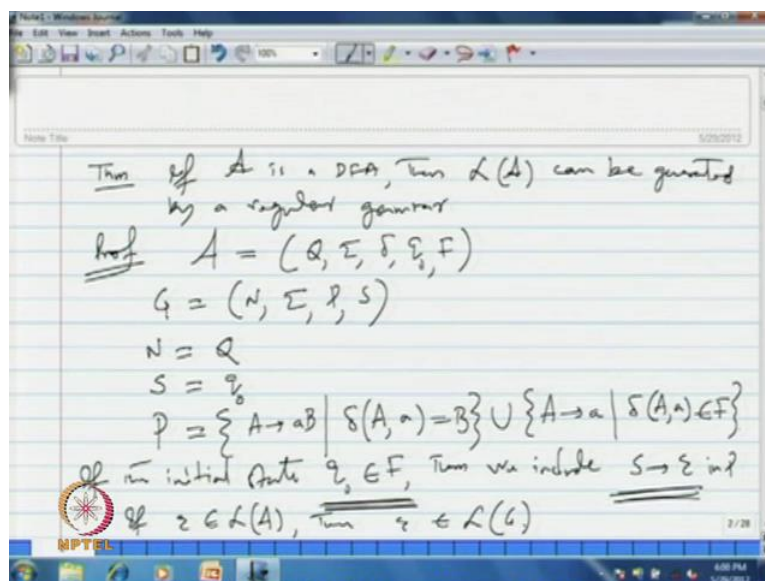 Note1 - Windows Journal
File Edit View Insert Actions Tools Help
100%
Note Title
5/29/2012
Thm If A is a DFA, Then L(A) can be generated
by a regular grammar
Proof A = (Q, Σ, δ, q₀, F)
G = (N, Σ, P, S)
N = Q
S = q₀
P = { A → aB | δ(A, a) = B } ∪ { A → a | δ(A, a) ∈ F }
If the initial state q₀ ∈ F, Then we include S → ε in P
If ε ∈ L(A), Then ε ∈ L(G)
2 / 28
NPTEL
6:00 PM
5/29/2012